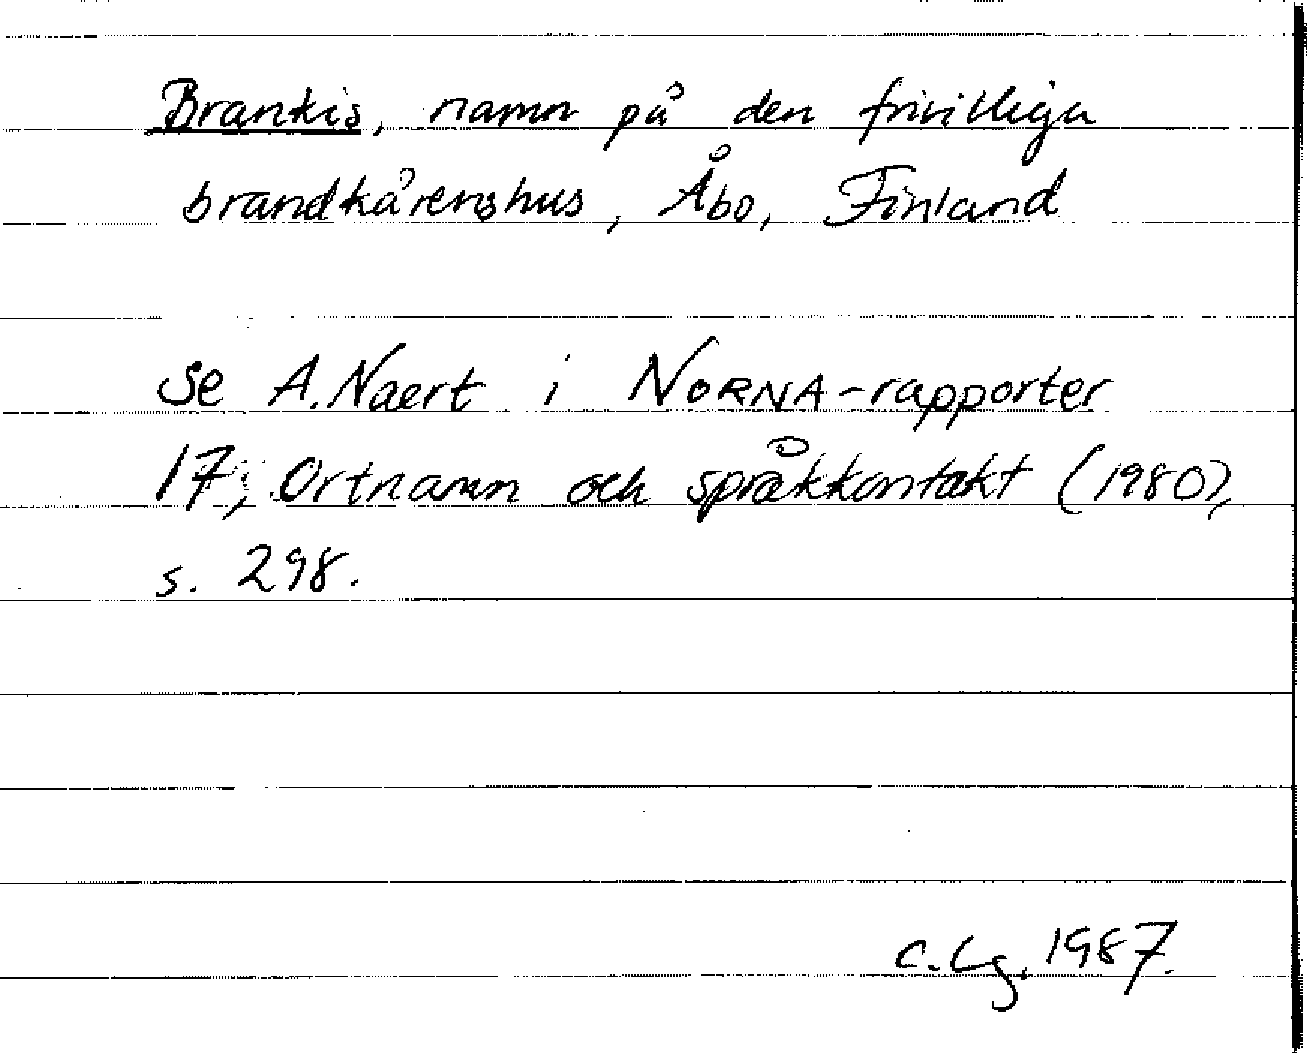 Brankis, namn på den frivilliga
brandkårens hus, Åbo, Finland
Se A. Naert i NORNA-rapporter
17, Ortnamn och språkkontakt (1980),
s. 298.
C. Lg. 1987.